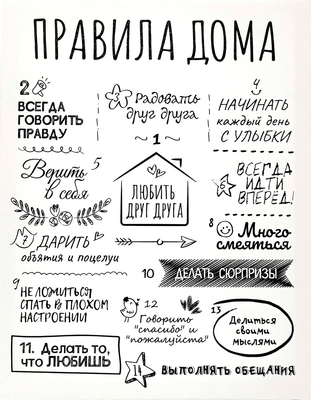 ПРАВИЛА ДОМА
1
ЛЮБИТЬ
ДРУГ ДРУГА
2
ВСЕГДА
ГОВОРИТЬ
ПРАВДУ
3
Радовать
друг друга
4
НАЧИНАТЬ
каждый день
С УЛЫБКИ
5
Верить
в себя
6
ВСЕГДА
ИДТИ
ВПЕРЁД!
7
ДАРИТЬ
объятия и поцелуи
8
Много
смеяться
9
НЕ ЛОЖИТЬСЯ
СПАТЬ В ПЛОХОМ
НАСТРОЕНИИ
10
ДЕЛАТЬ СЮРПРИЗЫ
11. Делать то,
что ЛЮБИШЬ
12
Говорить
"спасибо" и
"пожалуйста"
13
Делиться
своими
мыслями
14
ВЫПОЛНЯТЬ ОБЕЩАНИЯ